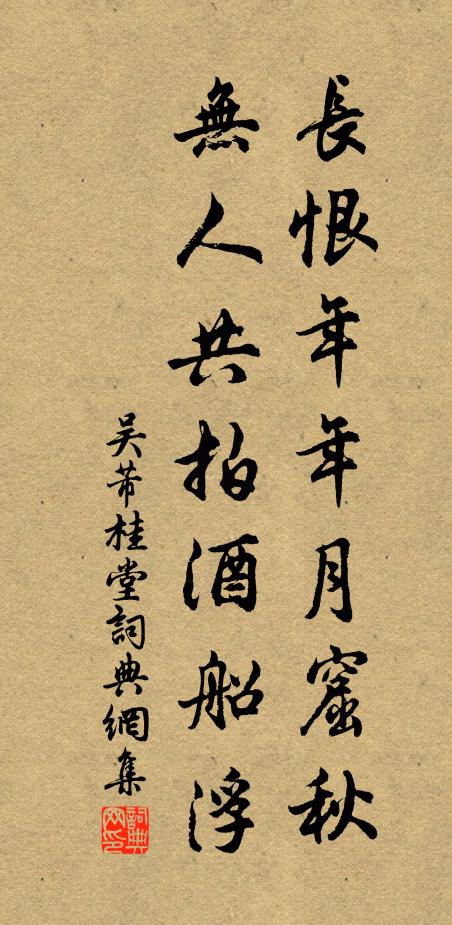 長恨年年月窟秋
無人共拍酒船浮
吴芾桂堂詞典網集
詞典网印